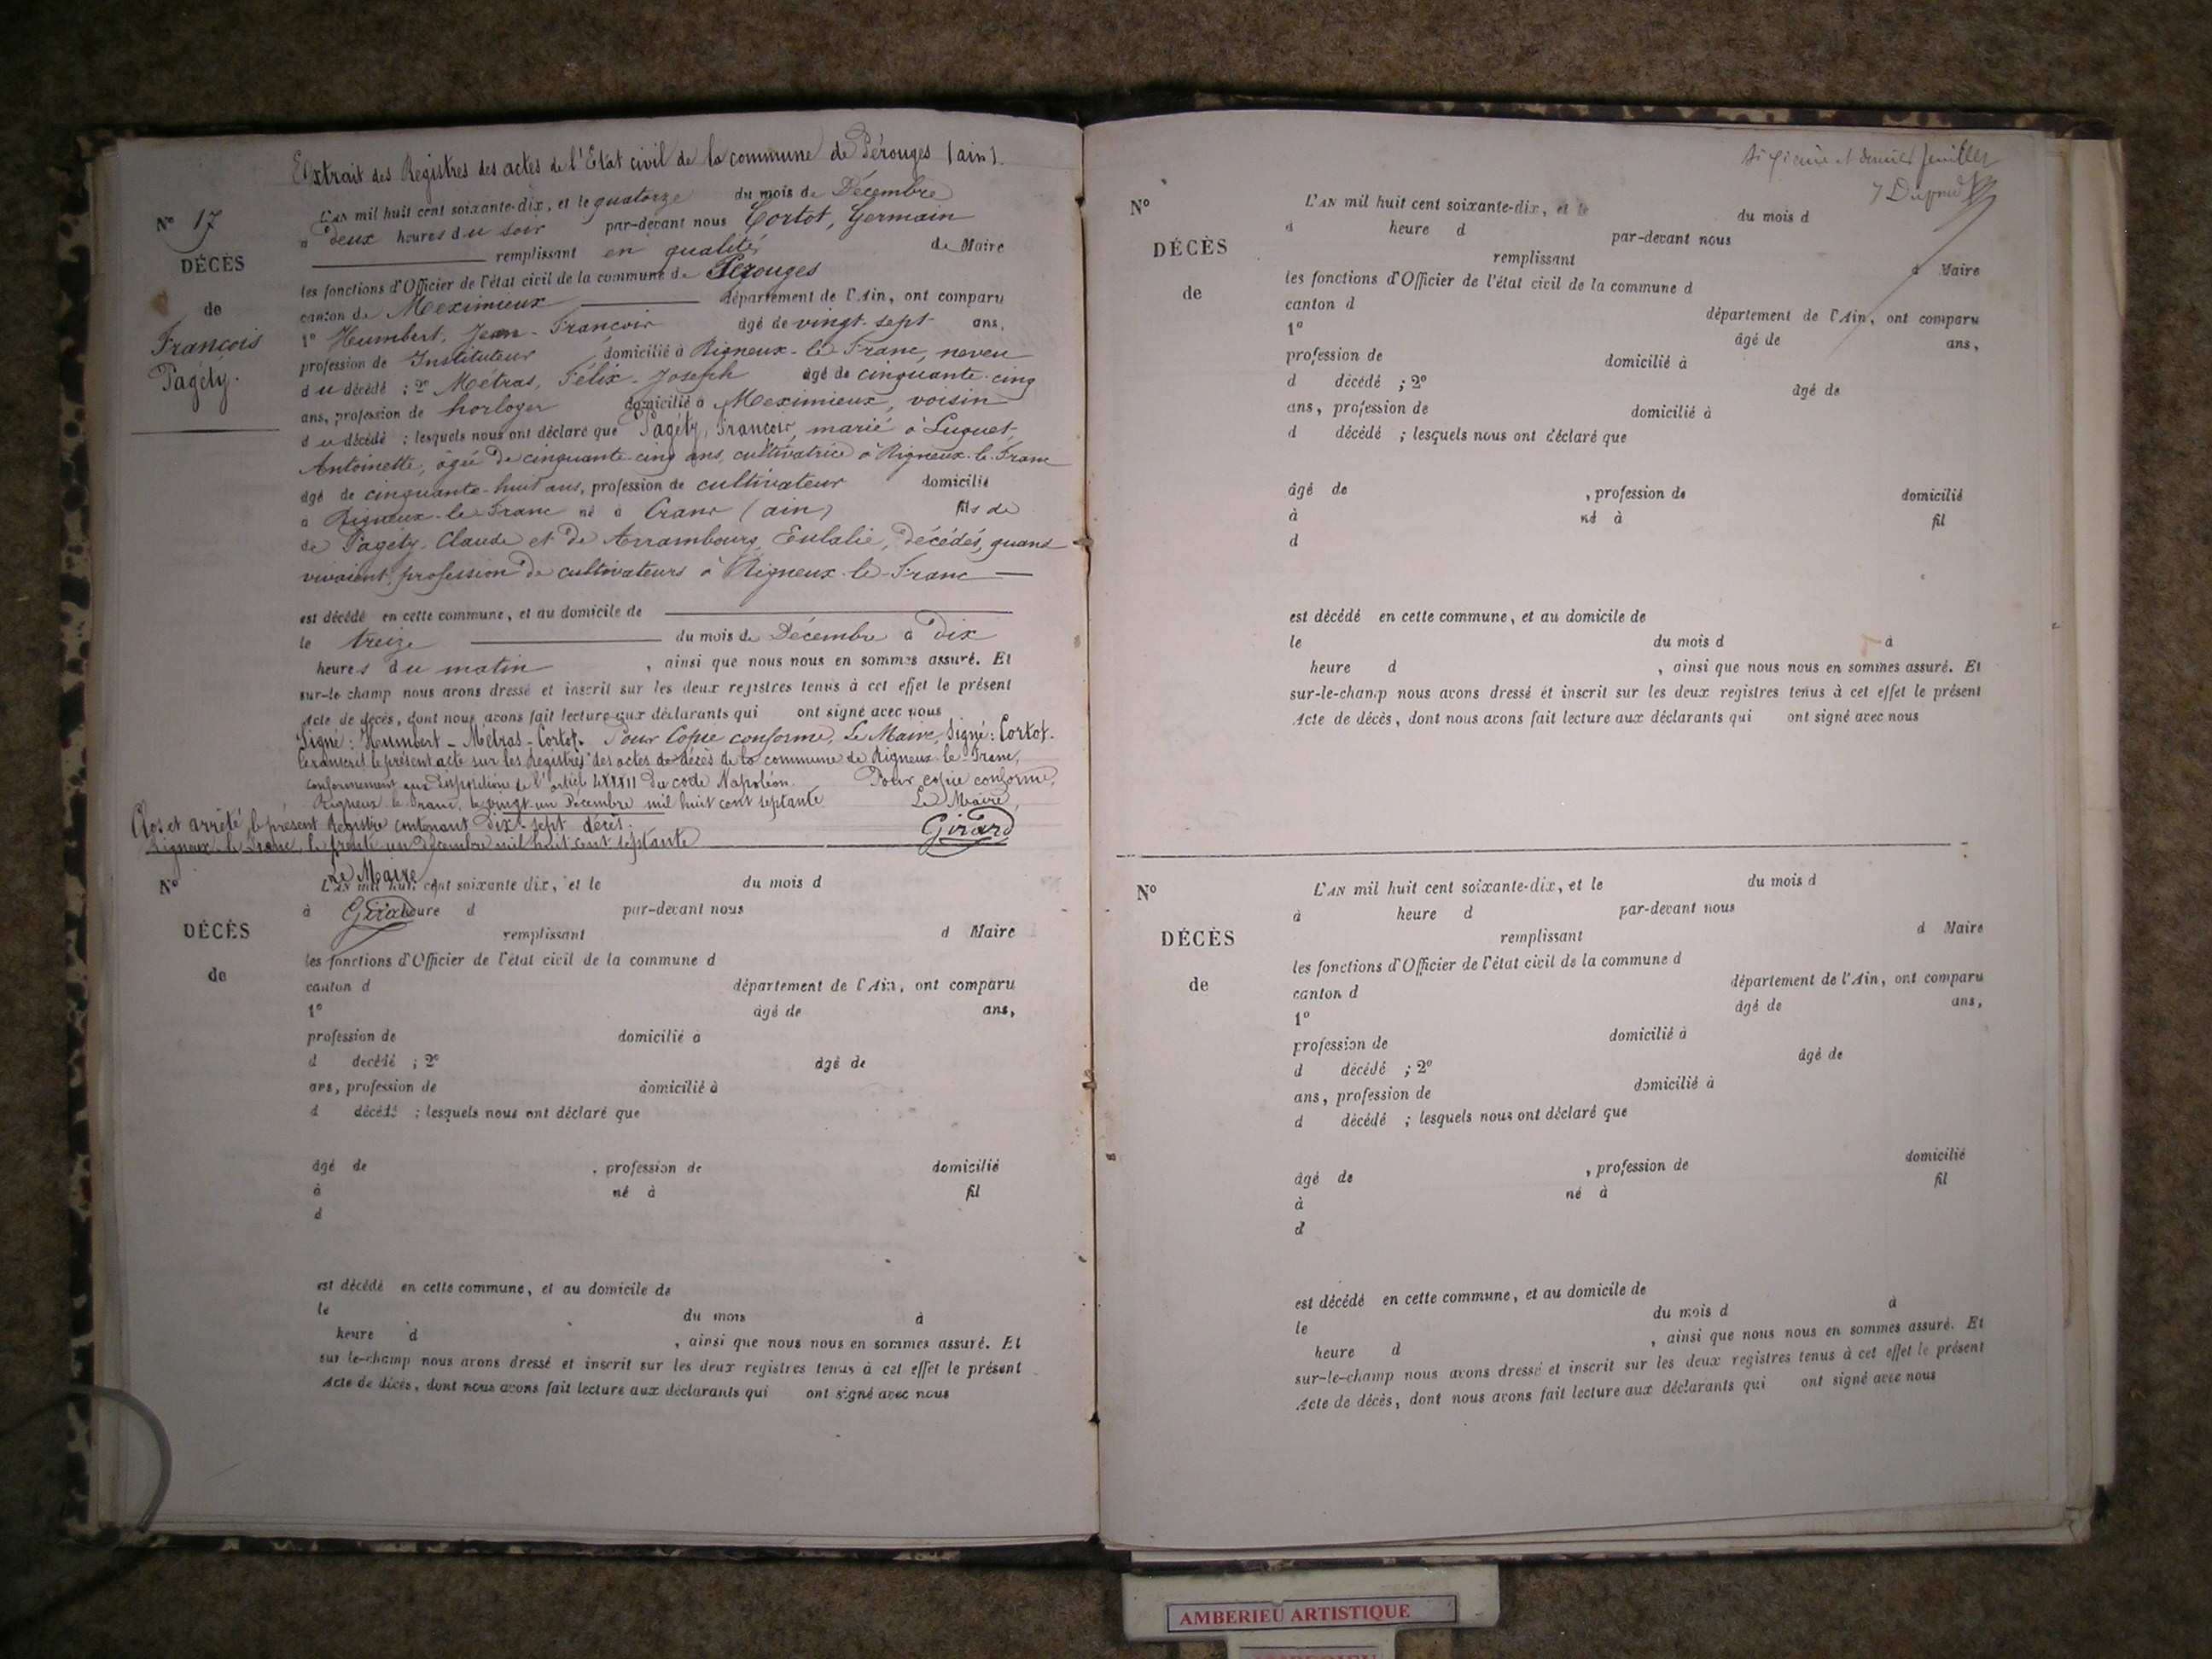 Extrait des Registres des actes de l'Etat civil de la commune de Pérouges (ain).
N° 17
DÉCÈS
de
François
Pagéty.
L'AN mil huit cent soixante-dix, et le quatorze du mois de Décembre
à deux heures du soir par-devant nous Cortot, Germain
remplissant en qualité de Maire
les fonctions d'Officier de l'état civil de la commune de Pérouges
canton de Meximieux département de l'Ain, ont comparu
1° Humbert, Jean-François âgé de vingt-sept ans,
profession de Instituteur domicilié à Rigneux-le-Franc, neveu
du décédé ; 2° Métras, Félix-Joseph âgé de cinquante-cinq
ans, profession de horloger domicilié à Meximieux, voisin
du décédé ; lesquels nous ont déclaré que Pagéty, François, marié à Luquet,
Antoinette, âgée de cinquante-cinq ans, cultivatrice à Rigneux-le-Franc
âgé de cinquante-huit ans, profession de cultivateur domicilié
à Rigneux-le-Franc né à Crans (ain) fils de
de Pagéty Claude et de Arrambourg, Eulalie, décédés, quand
vivaient, profession de cultivateurs à Rigneux-le-Franc
est décédé en cette commune, et au domicile de
le treize du mois de Décembre à dix
heures du matin , ainsi que nous nous en sommes assuré. Et
sur-le-champ nous avons dressé et inscrit sur les deux registres tenus à cet effet le présent
Acte de décès, dont nous avons fait lecture aux déclarants qui ont signé avec nous
Signé : Humbert - Métras - Cortot. Pour Copie conforme, Le Maire, Signé : Cortot.
le présent acte sur les Registres des actes de décès de la commune de Rigneux-le-Franc,
conformément aux dispositions de l'article LXXXII du code Napoléon. Pour copie conforme,
Rigneux-le-Franc, le vingt-un Décembre mil huit cent septante Le Maire,
Clos et arrêté le présent Registre contenant dix-sept décès. Girard
Rigneux-le-Franc, le trente-un Décembre mil huit cent septante
Le Maire
Girard
N°
DÉCÈS
de
L'AN mil huit cent soixante-dix, et le du mois d
à heure d par-devant nous
remplissant d Maire
les fonctions d'Officier de l'état civil de la commune d
canton d département de l'Ain, ont comparu
1° âgé de ans,
profession de domicilié à
d décédé ; 2° âgé de
ans, profession de domicilié à
d décédé ; lesquels nous ont déclaré que
âgé de , profession de domicilié
à né à fil
d
est décédé en cette commune, et au domicile de
le du mois à
heure d , ainsi que nous nous en sommes assuré. Et
sur-le-champ nous avons dressé et inscrit sur les deux registres tenus à cet effet le présent
Acte de décès, dont nous avons fait lecture aux déclarants qui ont signé avec nous
et dernier feuillet
N°
DÉCÈS
de
L'AN mil huit cent soixante-dix, et le du mois d
à heure d par-devant nous
remplissant d Maire
les fonctions d'Officier de l'état civil de la commune d
canton d département de l'Ain, ont comparu
1° âgé de ans,
profession de domicilié à
d décédé ; 2° âgé de
ans, profession de domicilié à
d décédé ; lesquels nous ont déclaré que
âgé de , profession de domicilié
à né à fil
d
est décédé en cette commune, et au domicile de
le du mois d à
heure d , ainsi que nous nous en sommes assuré. Et
sur-le-champ nous avons dressé et inscrit sur les deux registres tenus à cet effet le présent
Acte de décès, dont nous avons fait lecture aux déclarants qui ont signé avec nous
N°
DÉCÈS
de
L'AN mil huit cent soixante-dix, et le du mois d
à heure d par-devant nous
remplissant d Maire
les fonctions d'Officier de l'état civil de la commune d
canton d département de l'Ain, ont comparu
1° âgé de ans,
profession de domicilié à
d décédé ; 2° âgé de
ans, profession de domicilié à
d décédé ; lesquels nous ont déclaré que
âgé de , profession de domicilié
à né à fil
d
est décédé en cette commune, et au domicile de
le du mois d à
heure d , ainsi que nous nous en sommes assuré. Et
sur-le-champ nous avons dressé et inscrit sur les deux registres tenus à cet effet le présent
Acte de décès, dont nous avons fait lecture aux déclarants qui ont signé avec nous
AMBERIEU ARTISTIQUE